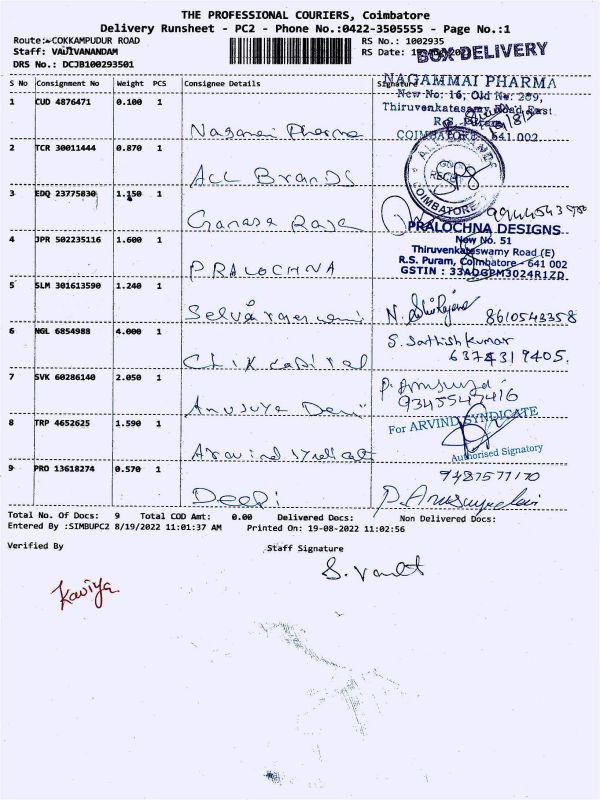 THE PROFESSIONAL COURIERS, Coimbatore
Delivery Runsheet - PC2 - Phone No.:0422-3505555 - Page No.:1
Route: COKKAMPUDUR ROAD
RS No.: 1002935
Staff: VADIVANANDAM
RS Date:
BOX DELIVERY
DRS No.: DCJB100293501
S No Consignment No Weight PCS Consignee Details Signature
NAGAMMAI PHARMA
New No: 16, Old No: 209,
Thiruvenkatasamy Road East
R.S. Puram,
COIMBATORE - 641 002
1 CUD 4876471 0.100 1 Nagamai Pharma
2 TCR 30011444 0.870 1 ALL Brands
ALL BRANDS
COIMBATORE
3 EDQ 23775830 1.150 1 Ganasa Raja
PRALOCHNA DESIGNS
New No. 51
Thiruvenkateswamy Road (E)
R.S. Puram, Coimbatore - 641 002
GSTIN : 33AOGPM3024R1ZD
4 JPR 502235116 1.600 1 PRALOCHNA
5 SLM 301613590 1.240 1 8610543358
6 NGL 6854988 4.000 1 Clik capital S. Sathish kumar
6374319405.
7 SVK 60286140 2.050 1 Anusuya Devi
9345542416
8 TRP 4652625 1.590 1
For ARVIND SYNDICATE
Authorised Signatory
9487577170
9 PRO 13618274 0.570 1 Deepi P. Anusuyadevi
Total No. Of Docs: 9 Total COD Amt: 0.00 Delivered Docs: Non Delivered Docs:
Entered By :SIMBUPC2 8/19/2022 11:01:37 AM Printed On: 19-08-2022 11:02:56
Verified By Staff Signature
Kaviya